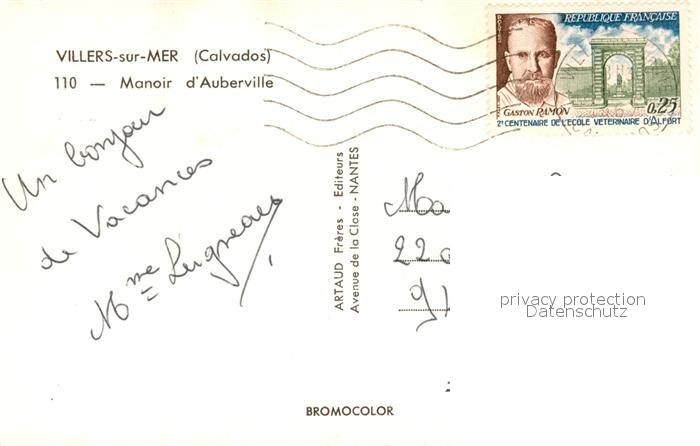 VILLERS-sur-MER (Calvados)
110 — Manoir d'Auberville
Un bonjour
de Vacances
Mme
ARTAUD Frères - Editeurs
Avenue de la Close - NANTES
BROMOCOLOR
POSTES
RÉPUBLIQUE FRANÇAISE
GASTON RAMON
0,25
2e CENTENAIRE DE L'ÉCOLE VÉTÉRINAIRE D'ALFORT
Ma
22
privacy protection
Datenschutz